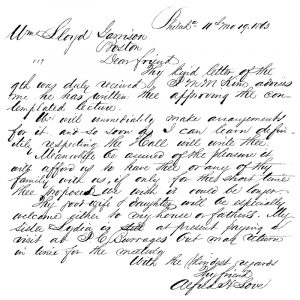 Philada 11th mo 19. 1863
Wm Lloyd Garrison
Boston
Dear friend
Thy kind letter of the
9th was duly received by J. M. M. Kim advises
me he has written thee approving the con-
templated lecture.
We will immediately make arrangements
for it and so soon as I can learn defin-
itely respecting the Hall will write thee.
Meanwhile be assured of the pleasure it
will afford us to have thee or any of thy
family with us, if only for the short time
thee proposed we wish it could be longer.
Thy good wife & daughter will be especially
welcome either to my house or father's. My
sister Lydia is at present paying a
visit at J. C. Burrages but may return
in time for the meeting
With the kindest regards
Thy friend
Alfred H Love